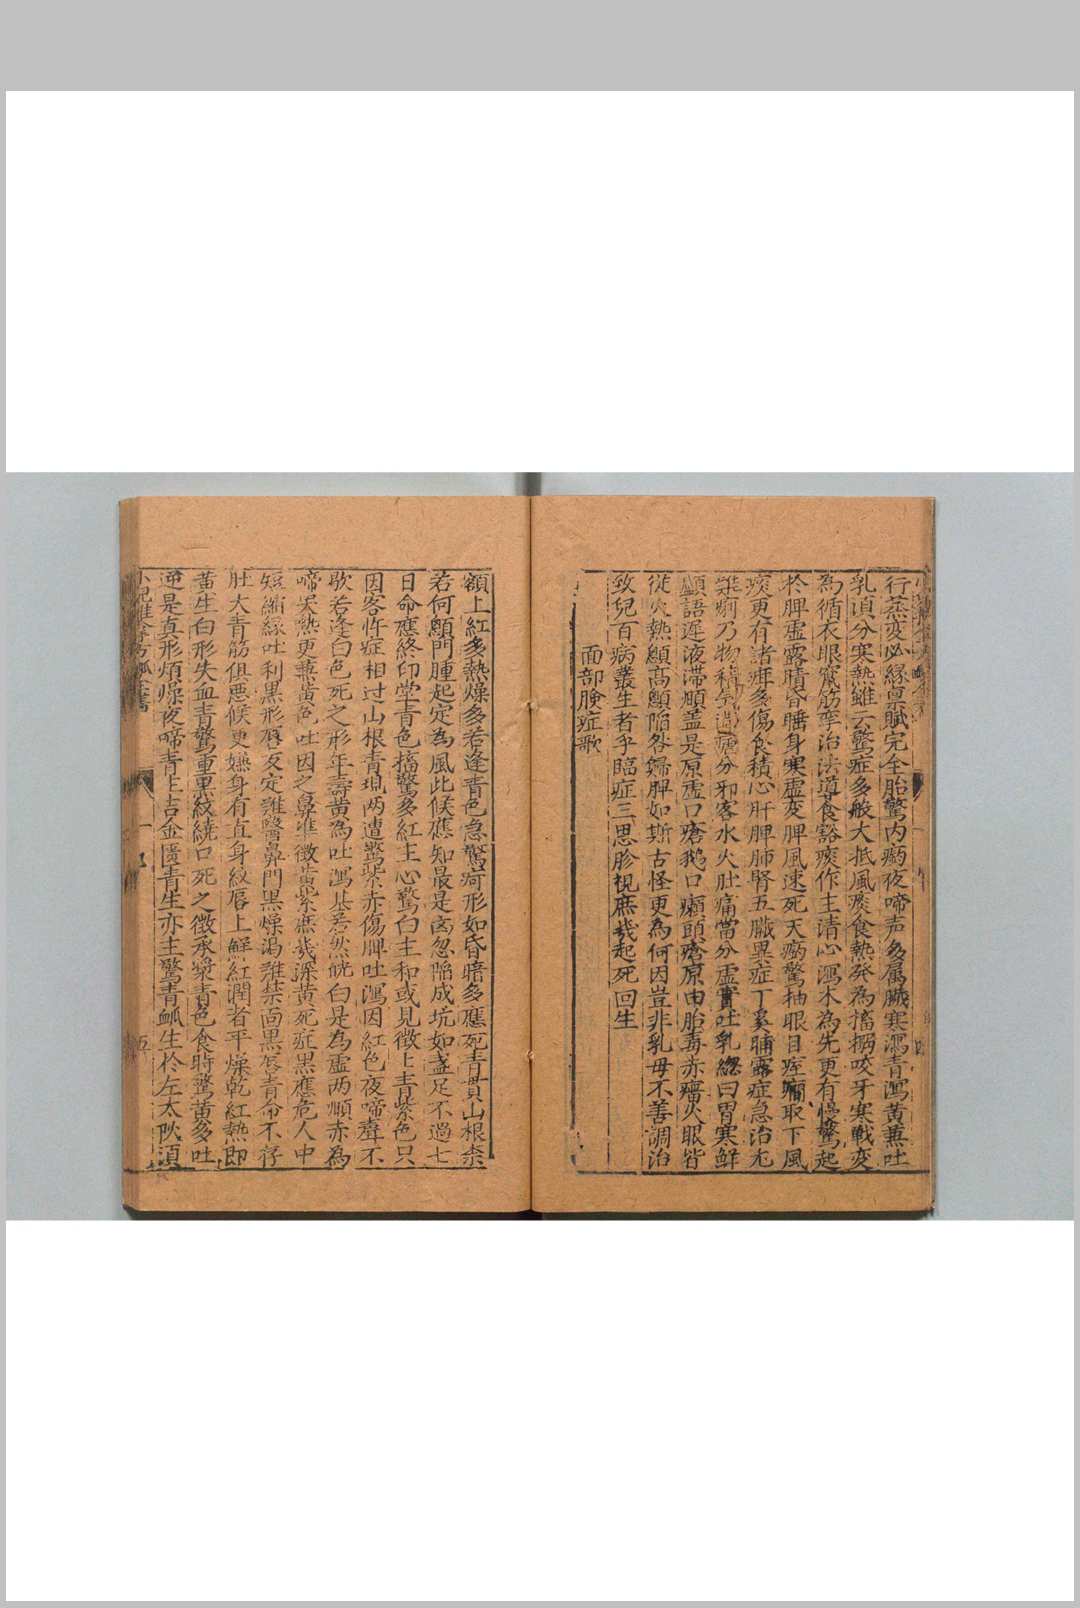 行蒸变必緣稟賦完全胎驚内痫夜啼声多属臓寒瀉青瀉黄兼吐
乳須分寒熱雖云驚症多般大抵風痰食熱発為搐搦咬牙寒戰变
為循衣眼竄筋孪治法導食豁痰作主清心瀉木為先更有慢驚起
於脾虚露睛昏睡身寒虚变脾風速死天痫驚抽眼目痓癇取下風
痰更有諸疳多傷食積心肝脾肺腎五臓異症丁奚哺露症急治尤
難疴乃物積氣滯分邪客水火肚痛當分虚實吐乳總曰胃寒鮮
顱語遲液滞頻盖是原虚口瘡鵝口癩頭瘡原由胎毒赤瘤火眼皆
従火熱顖高顖陷咎歸脾如斯古怪更為何因豈非乳母不善調治
致兒百病叢生者乎臨症三思胗視庶幾起死回生
面部臉症歌
額上紅多熱燥多若逢青色急驚疴形如昏暗多應死青貫山根柰
若何顖門腫起定為風此候應知最是凶忽陷成坑如盞足不過七
日命應終印堂青色搐驚多紅主心驚白主和或見微上青紫色只
因客忤症相过山根青現两遭驚紫赤傷脾吐瀉因紅色夜啼聲不
歇若逢白色死之形年壽黄為吐瀉基若然㿠白是為虚两顴赤為
啼哭熱更兼黄色吐因之鼻準微黄紫庶幾深黄死症黒應危人中
短縮緣吐利黒形唇反定難醫鼻門黒燥渴難禁面黒唇青命不存
肚大青筋俱悪候更嫌身有直身紋唇上鮮紅潤者平燥乾紅熱即
黄生白形失血青驚重黒紋繞口死之徴承漿青色食時驚黄多吐
逆是真形煩燥夜啼青主吉金匱青生亦主驚青瓠生於左太陽須